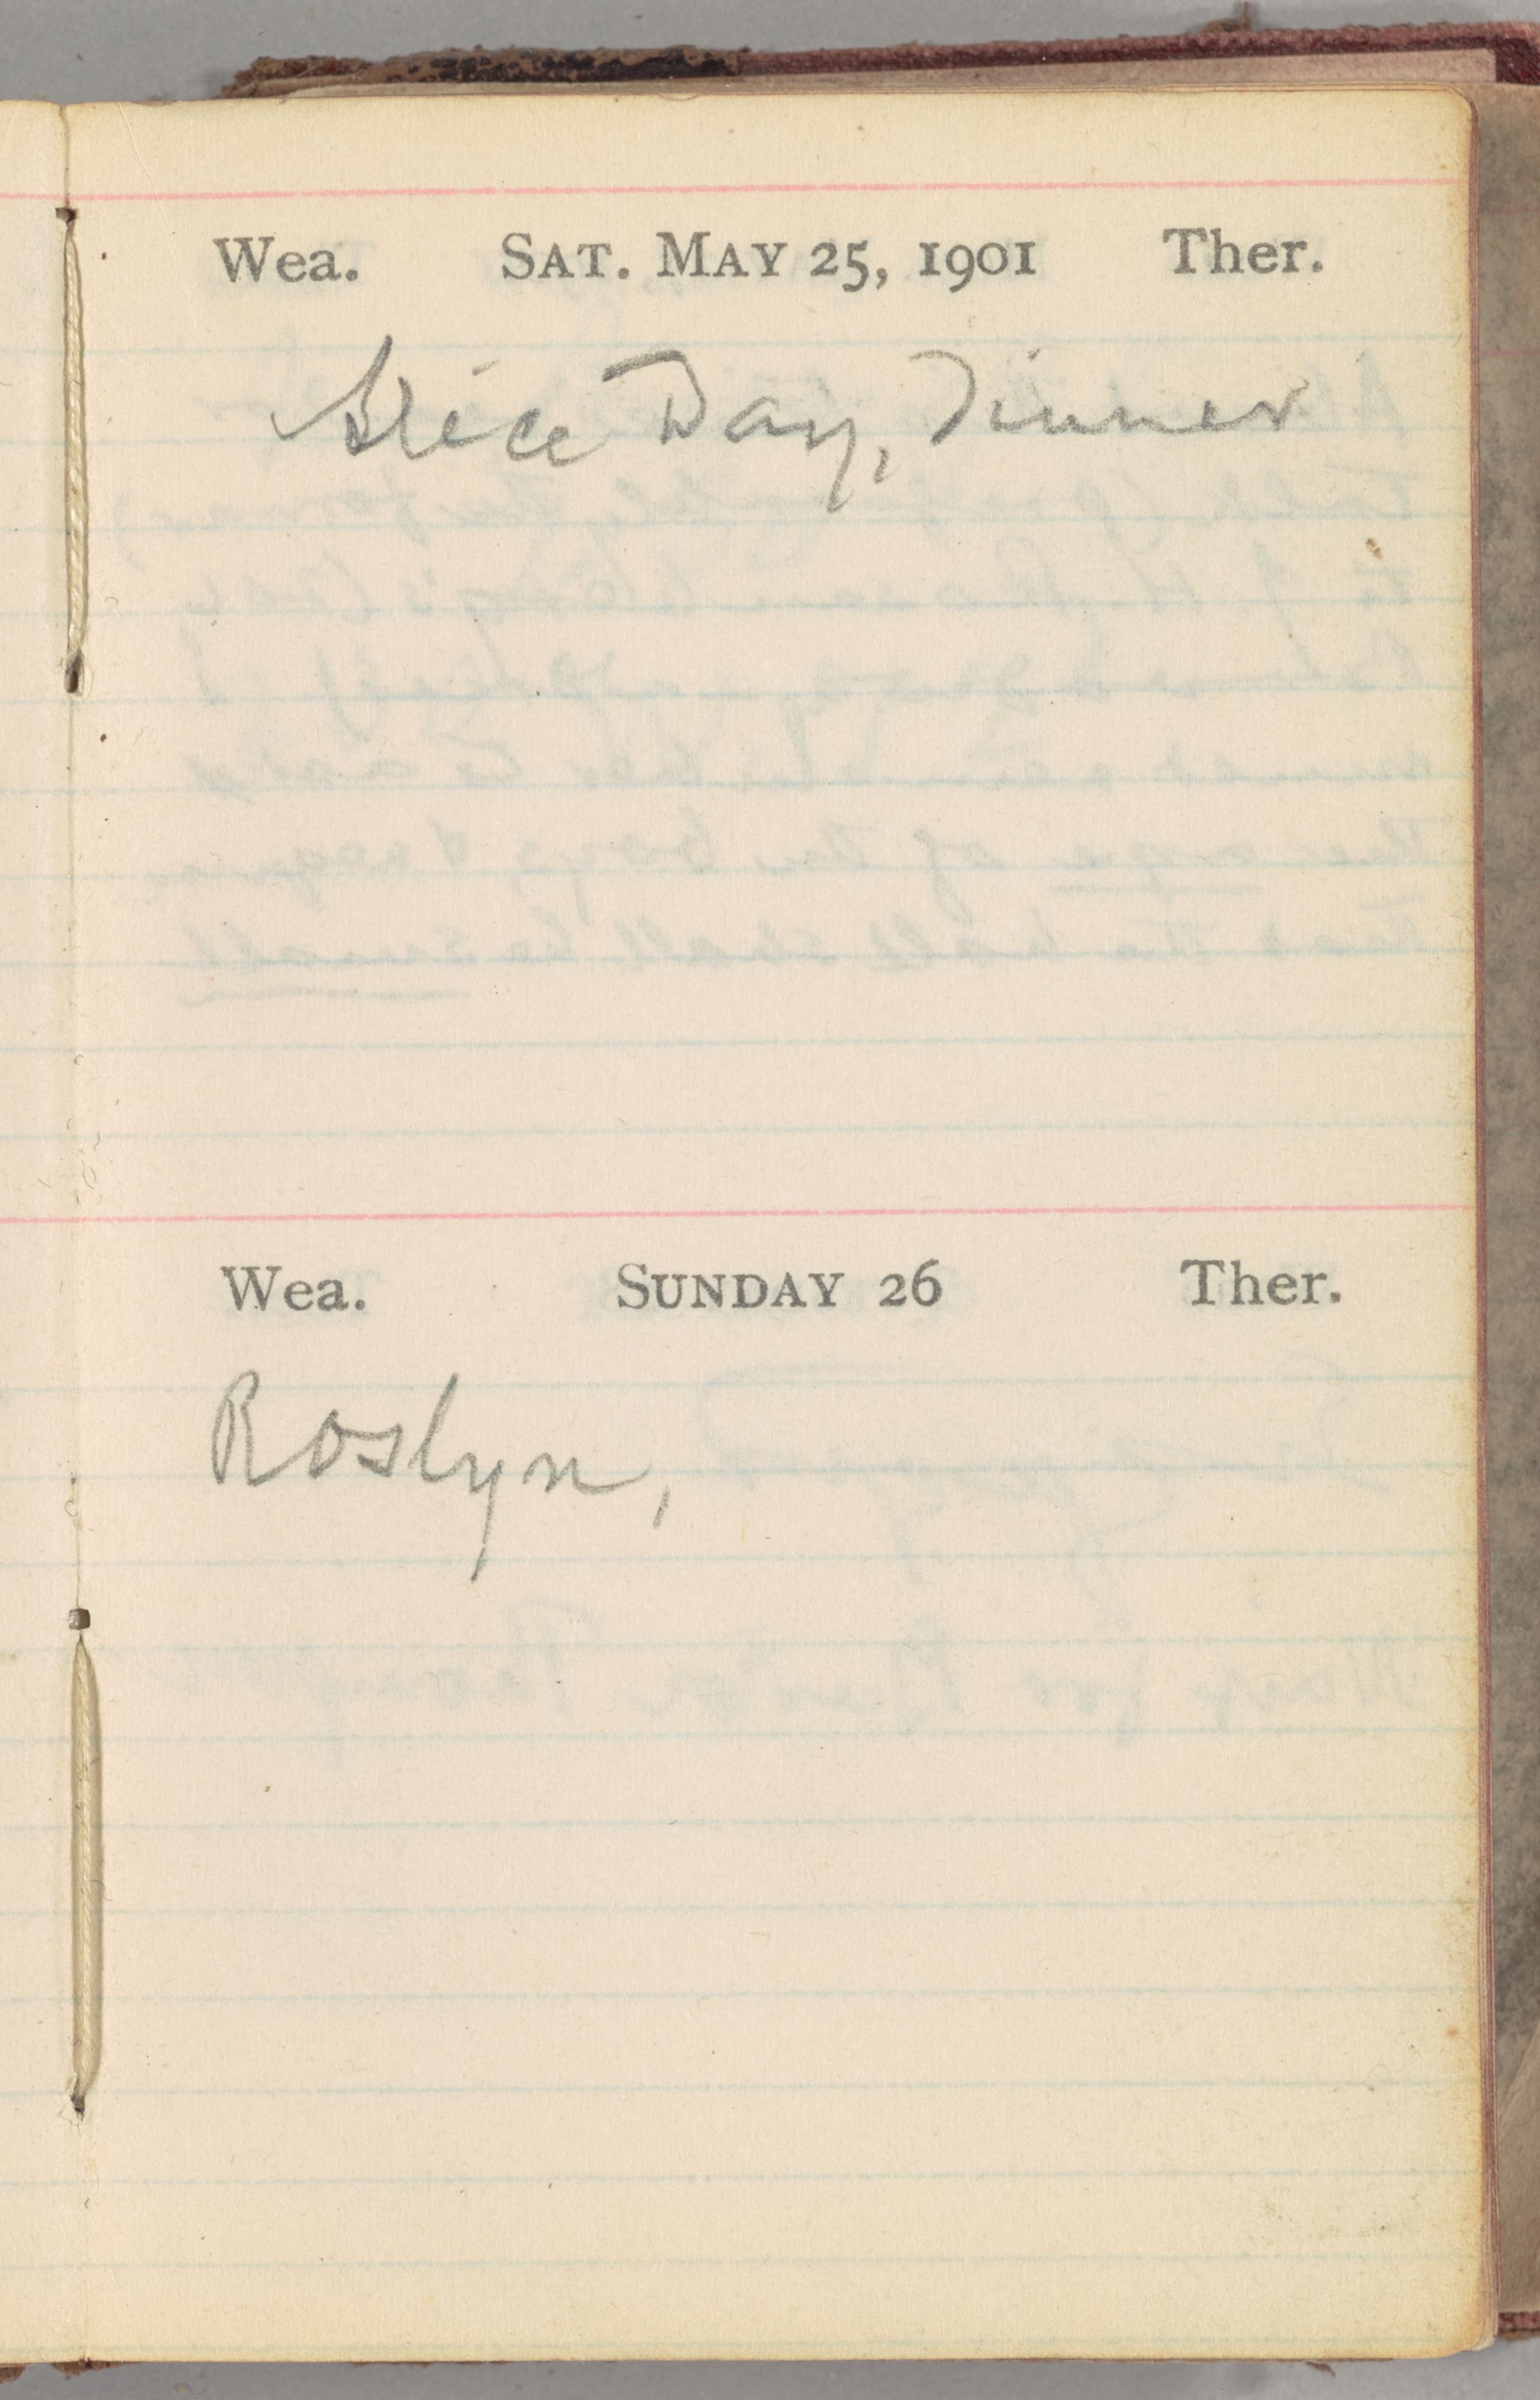 Wea. SAT. MAY 25, 1901 Ther.
Alice Day, Dinner
Wea. SUNDAY 26 Ther.
Roslyn,